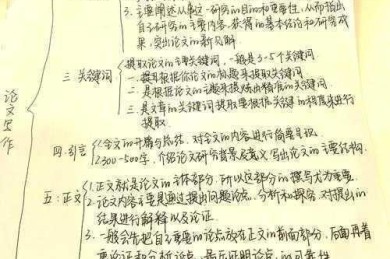 3. 主要阐述从事这一研究的目的和重要性,从而指出
自己研究的主要内容,获得的基本结论和研究成
果,突出论文的新见解.
三 关键词
提取论文的主要关键词,一般是3-5个关键词
一是根据你论文的标题来提取关键词
二是根据论文的主题来提炼出精准的关键词
三是文章的关键词提取要根据关键词的精度来进行
提取.
论文写作
四.引言
1.全文的开篇与总括,对全文的内容进行简要言说
2.300-500字,介绍论文研究背景及意义写出论文的主要结构.
五:正文
1.正文就是论文的主体部分,所以这部分的撰写尤为重要
2.论文内容主要是通过提出问题论点,分析和探究,对提出的
结果进行解释以及论证.
3.一般会先把自己重要的论点放在正文的前面部分,后面再着
重论证和分析论点,最后证明论点的可靠性